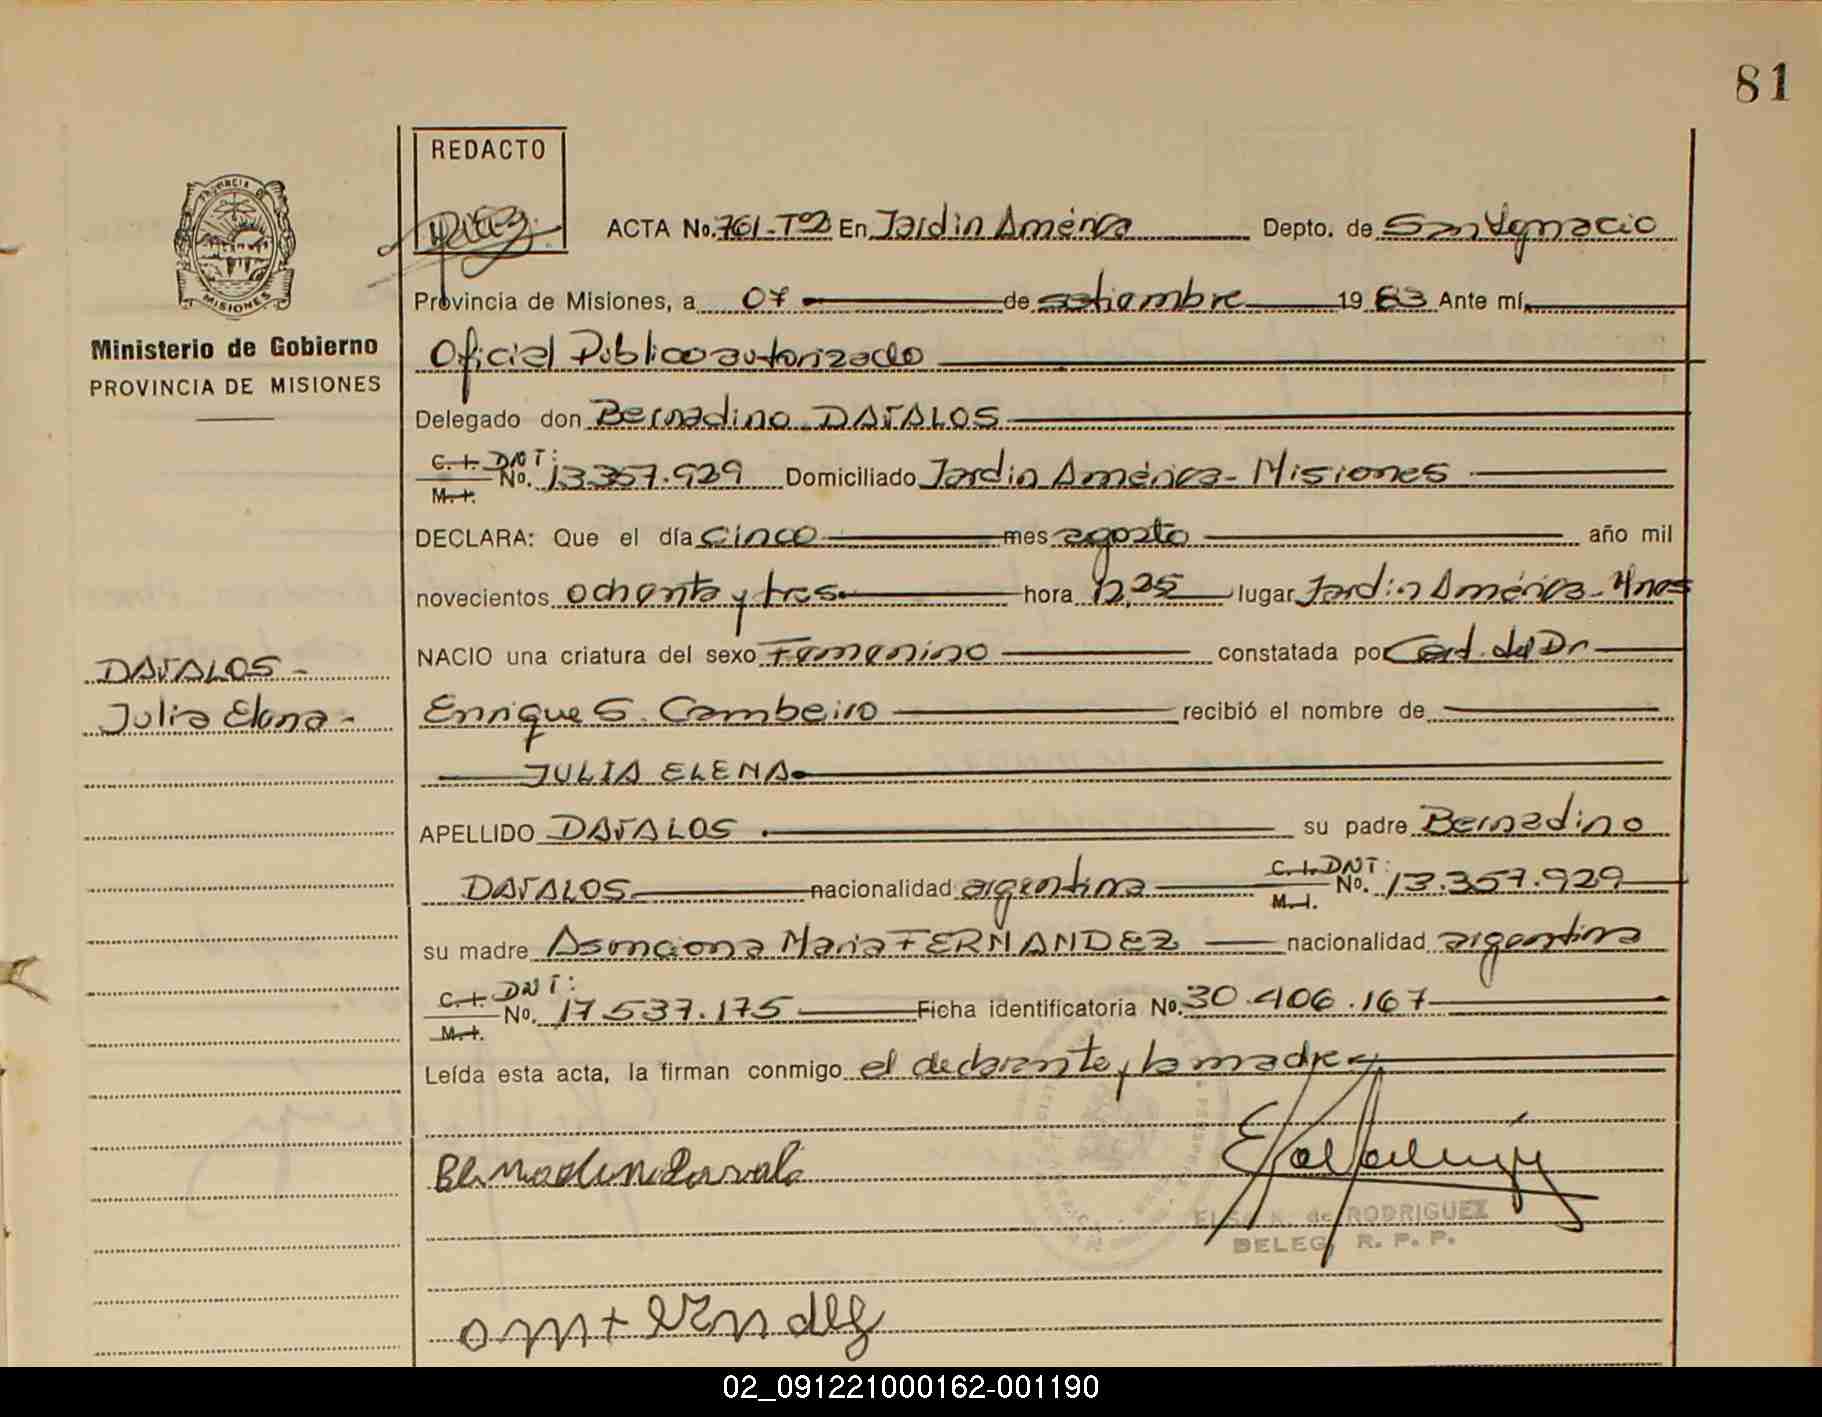 81
REDACTO
PROVINCIA DE
MISIONES
Ministerio de Gobierno
PROVINCIA DE MISIONES
ACTA No. 761-Tº2 En Jardin América Depto. de San Ygnacio
Provincia de Misiones, a 07 de setiembre 1983 Ante mí,
Oficial Publico autorizado
Delegado don Bernadino DAVALOS
C. I. DNI:
M. I. No. 13.357.929 Domiciliado Jardin América - Misiones
DECLARA: Que el día cinco mes agosto año mil
novecientos ochenta y tres hora 12,25 lugar Jardin América - Mnes
NACIO una criatura del sexo Femenino constatada por Cert. del Dr
Enrique S. Cambeiro recibió el nombre de
JULIA ELENA
APELLIDO DAVALOS su padre Bernadino
DAVALOS nacionalidad argentina C. I. DNI: M. I. No. 13.357.929
su madre Asunciona Maria FERNANDEZ nacionalidad argentina
C. I. DNI:
M. I. No. 17.537.175 Ficha identificatoria No. 30.406.167
Leída esta acta, la firman conmigo el declarante y la madre
DAVALOS -
Julia Elena -
ELSA K. de RODRIGUEZ
DELEG. R. P. P.
02_091221000162-001190